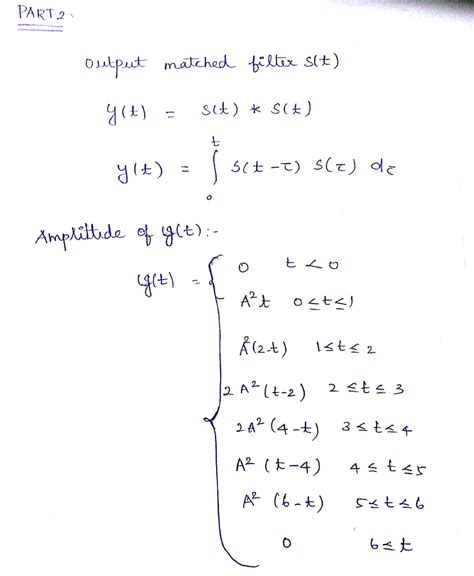 PART 2.
output matched filter s(t)
y(t) = s(t) * s(t)
y(t) = ∫₀ᵗ s(t-τ) s(τ) dτ
Amplittude of y(t):-
y(t) = { 0 t<0
A²t 0≤t≤1
A²(2-t) 1≤t≤2
2A²(t-2) 2≤t≤3
2A²(4-t) 3≤t≤4
A²(t-4) 4≤t≤5
A²(6-t) 5≤t≤6
0 6≤t